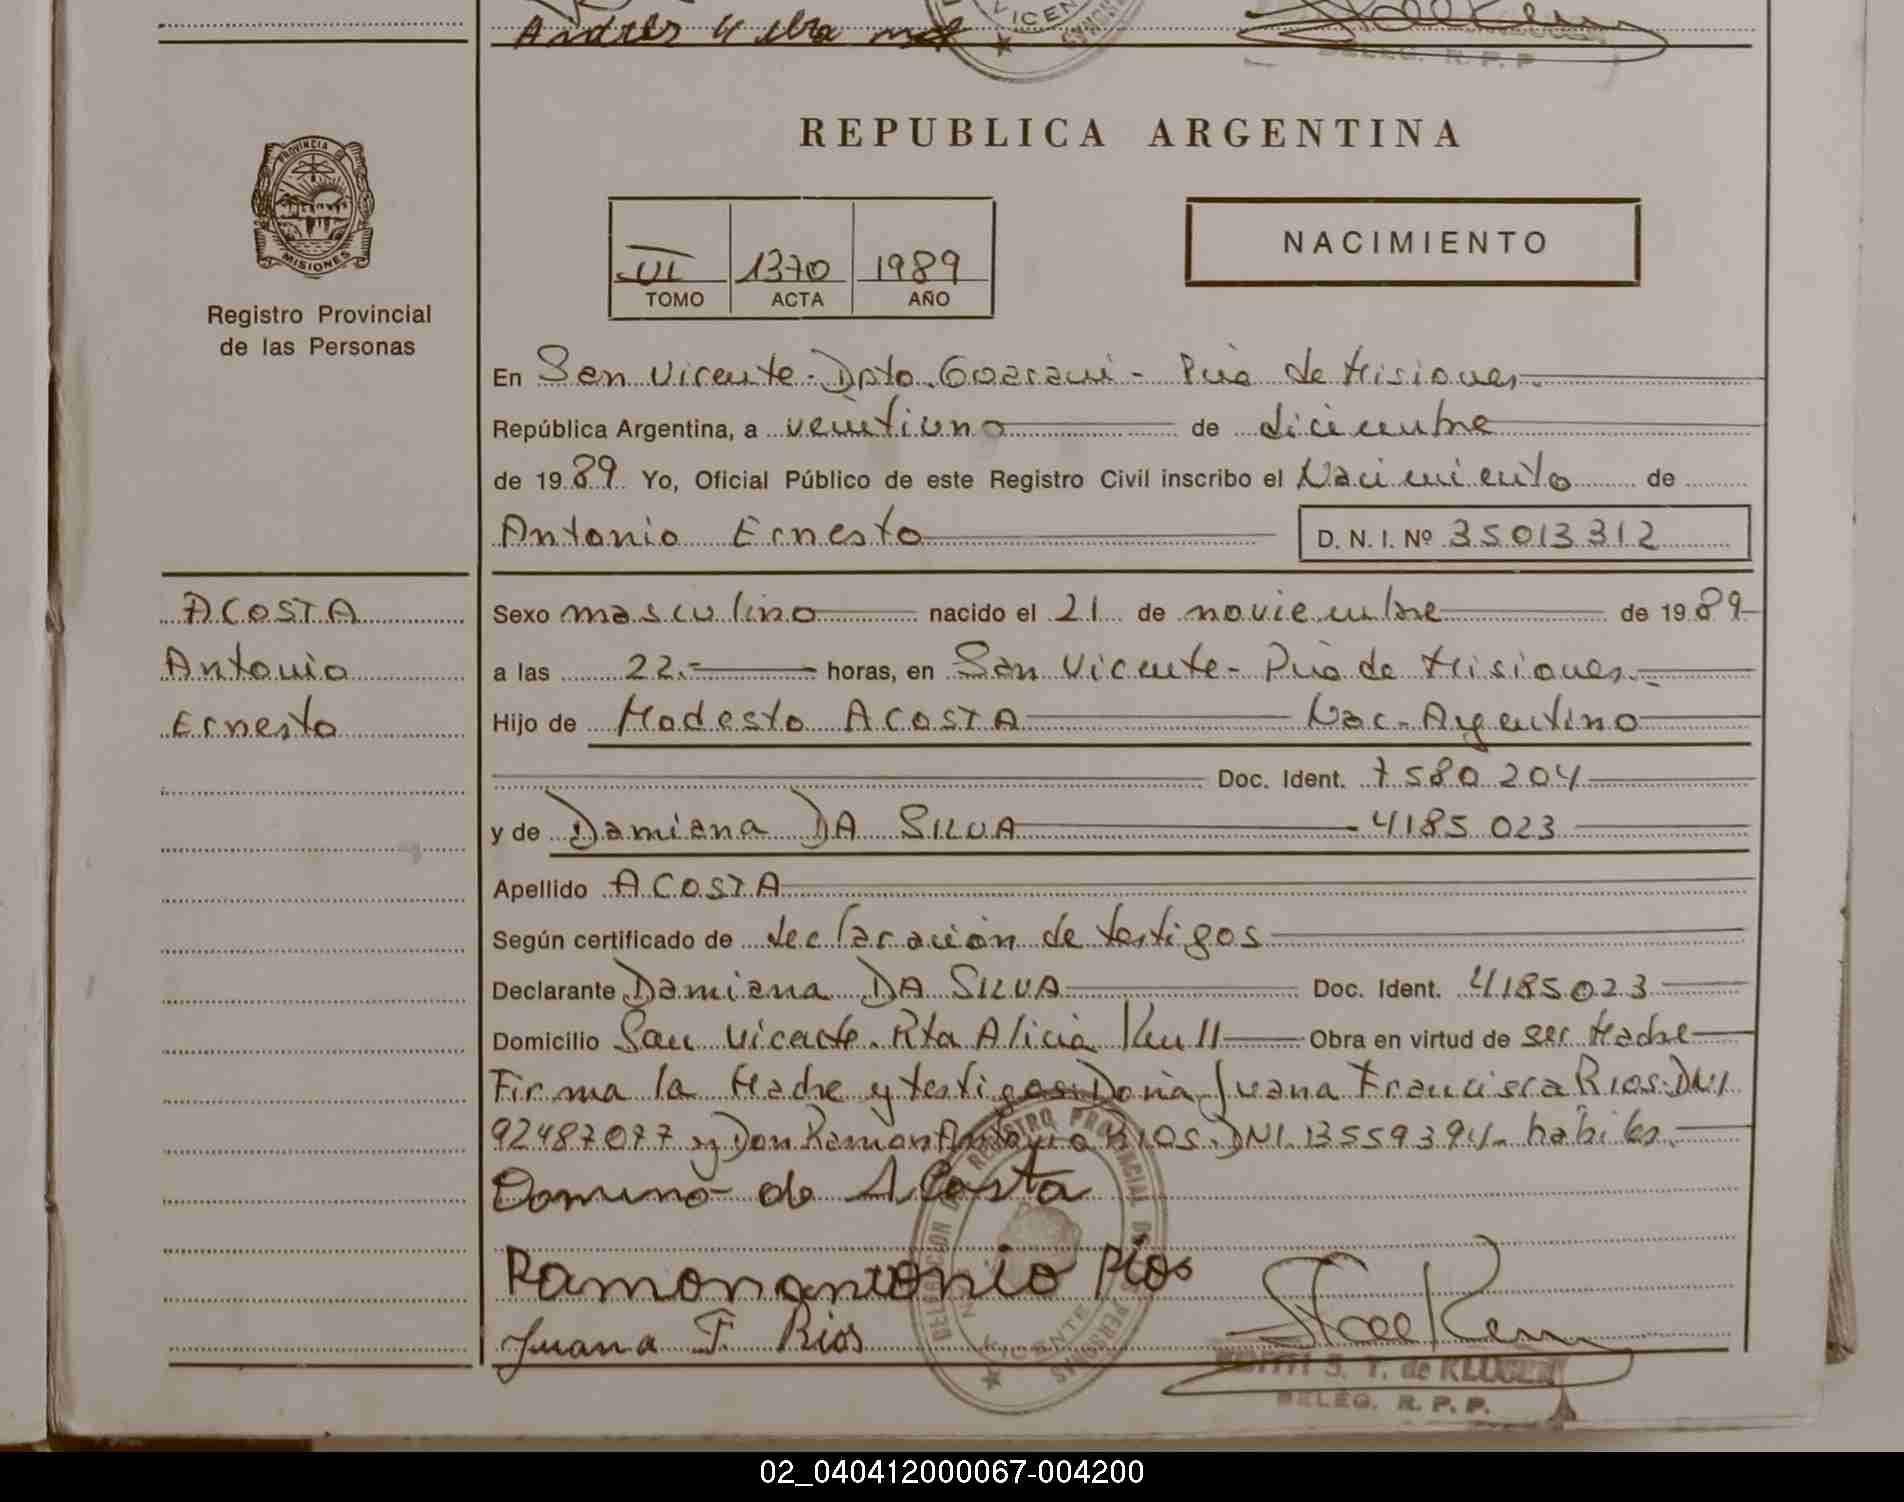 Andrés
VICEN
DELEG. R. P. P
REPUBLICA ARGENTINA
PROVINCIA
MISIONES
Registro Provincial
de las Personas
VI 1370 1989
TOMO ACTA AÑO
NACIMIENTO
En San Vicente - Dpto. Guaraní - Pcia de Misiones.
República Argentina, a veintiuno de diciembre
de 1989 Yo, Oficial Público de este Registro Civil inscribo el Nacimiento de
Antonio Ernesto D. N. I. Nº 35013312
ACOSTA
Antonio
Ernesto
Sexo masculino nacido el 21 de noviembre de 1989
a las 22.- horas, en San Vicente - Pcia de Misiones.-
Hijo de Modesto ACOSTA Nac. Argentino
Doc. Ident. 7580204
y de Damiana DA SILVA 4185023
Apellido ACOSTA
Según certificado de declaración de testigos
Declarante Damiana DA SILVA Doc. Ident. 4185023
Domicilio San Vicente. Rta Alicia Km 11 Obra en virtud de ser Madre
Firma la Madre y testigos: Doña Juana Francisca Rios. DNI
92487077 y Don Ramon Antonio RIOS. DNI 13559394 - habiles.
de Acosta
Ramon antonio Rios
Juana F. Rios
DELEGACION DEL REGISTRO PROVINCIAL DE
PERSONAS
VICENTE
S. T. de KLUGEN
DELEG. R. P. P.
02_040412000067-004200